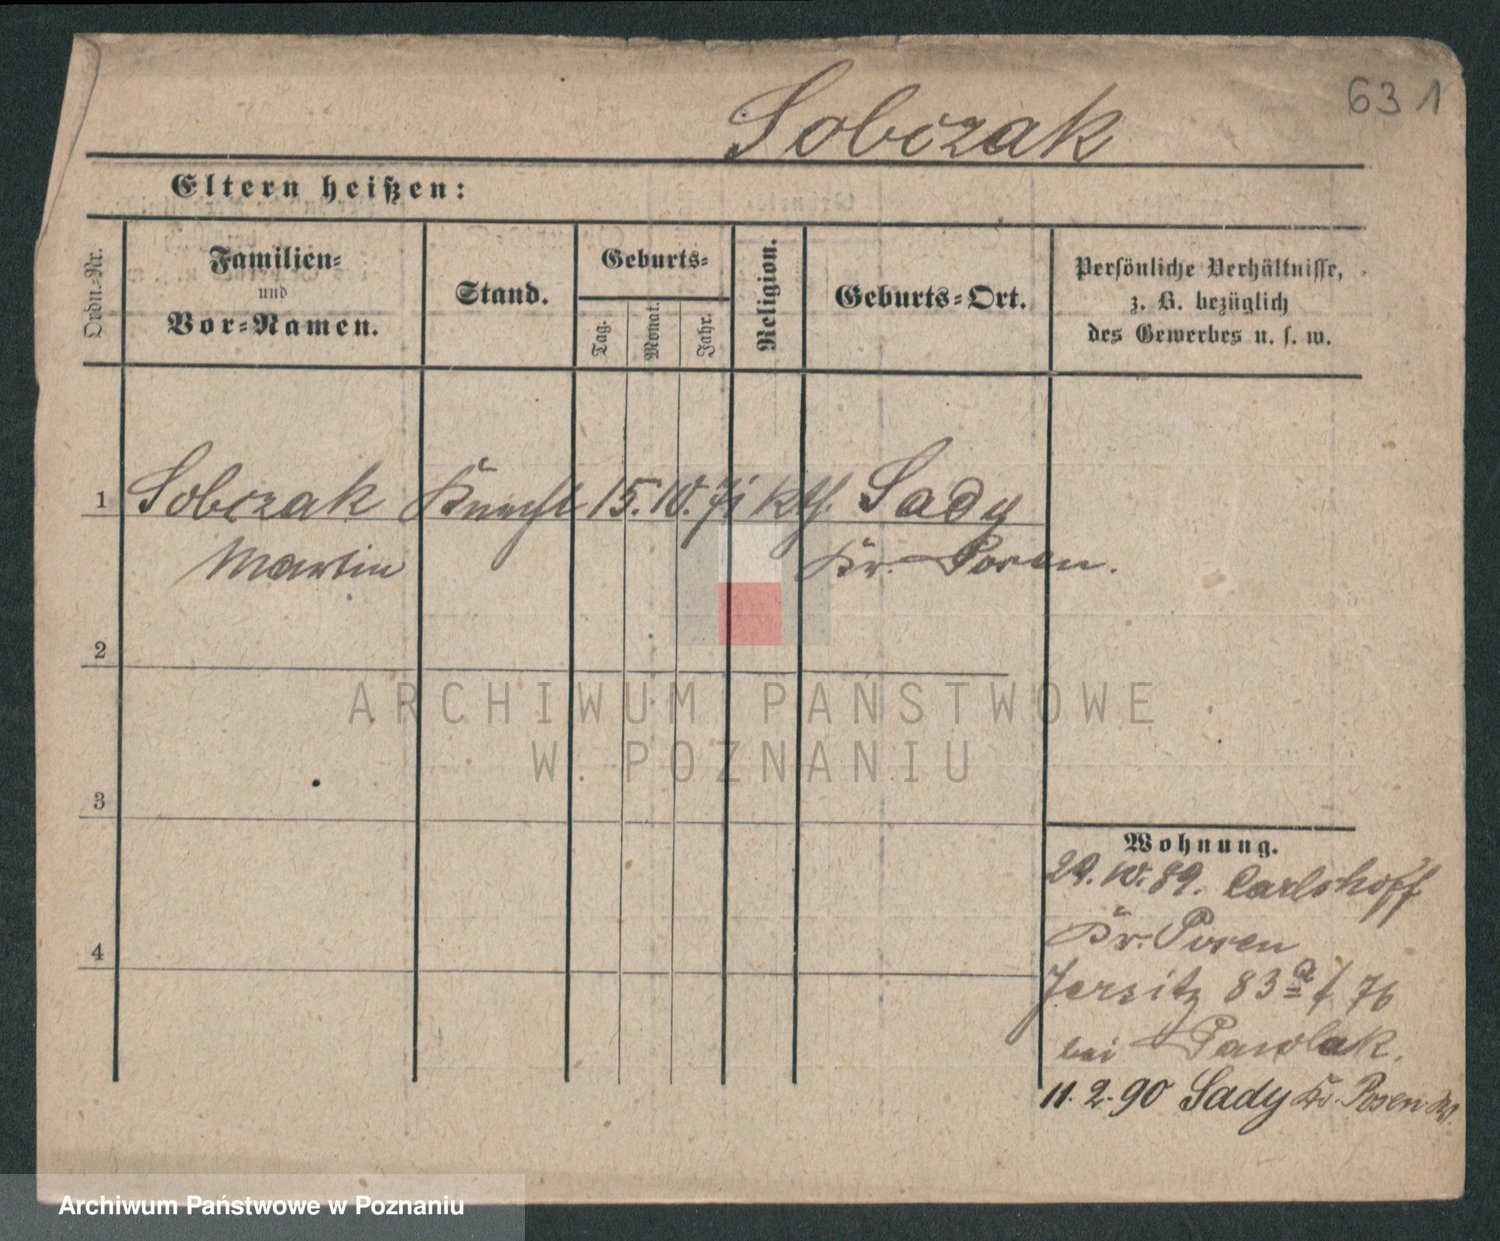 631
Sobczak
Eltern heißen:
Ordn.-Nr.
Familien-
und
Vor-Namen.
Stand.
Geburts-
Tag.
Monat.
Jahr.
Religion.
Geburts-Ort.
Persönliche Verhältnisse,
z. B. bezüglich
des Gewerbes u. s. w.
1 Sobczak Knecht 15. 10. 71 kth. Sady
Martin Kr. Posen.
2
ARCHIWUM PAŃSTWOWE
W POZNANIU
3
Wohnung.
29. 10. 89. Carlshoff
Kr. Posen
4
Jersitz 83a / 76
bei Pawlak.
11. 2. 90 Sady Kr. Posen W.
Archiwum Państwowe w Poznaniu